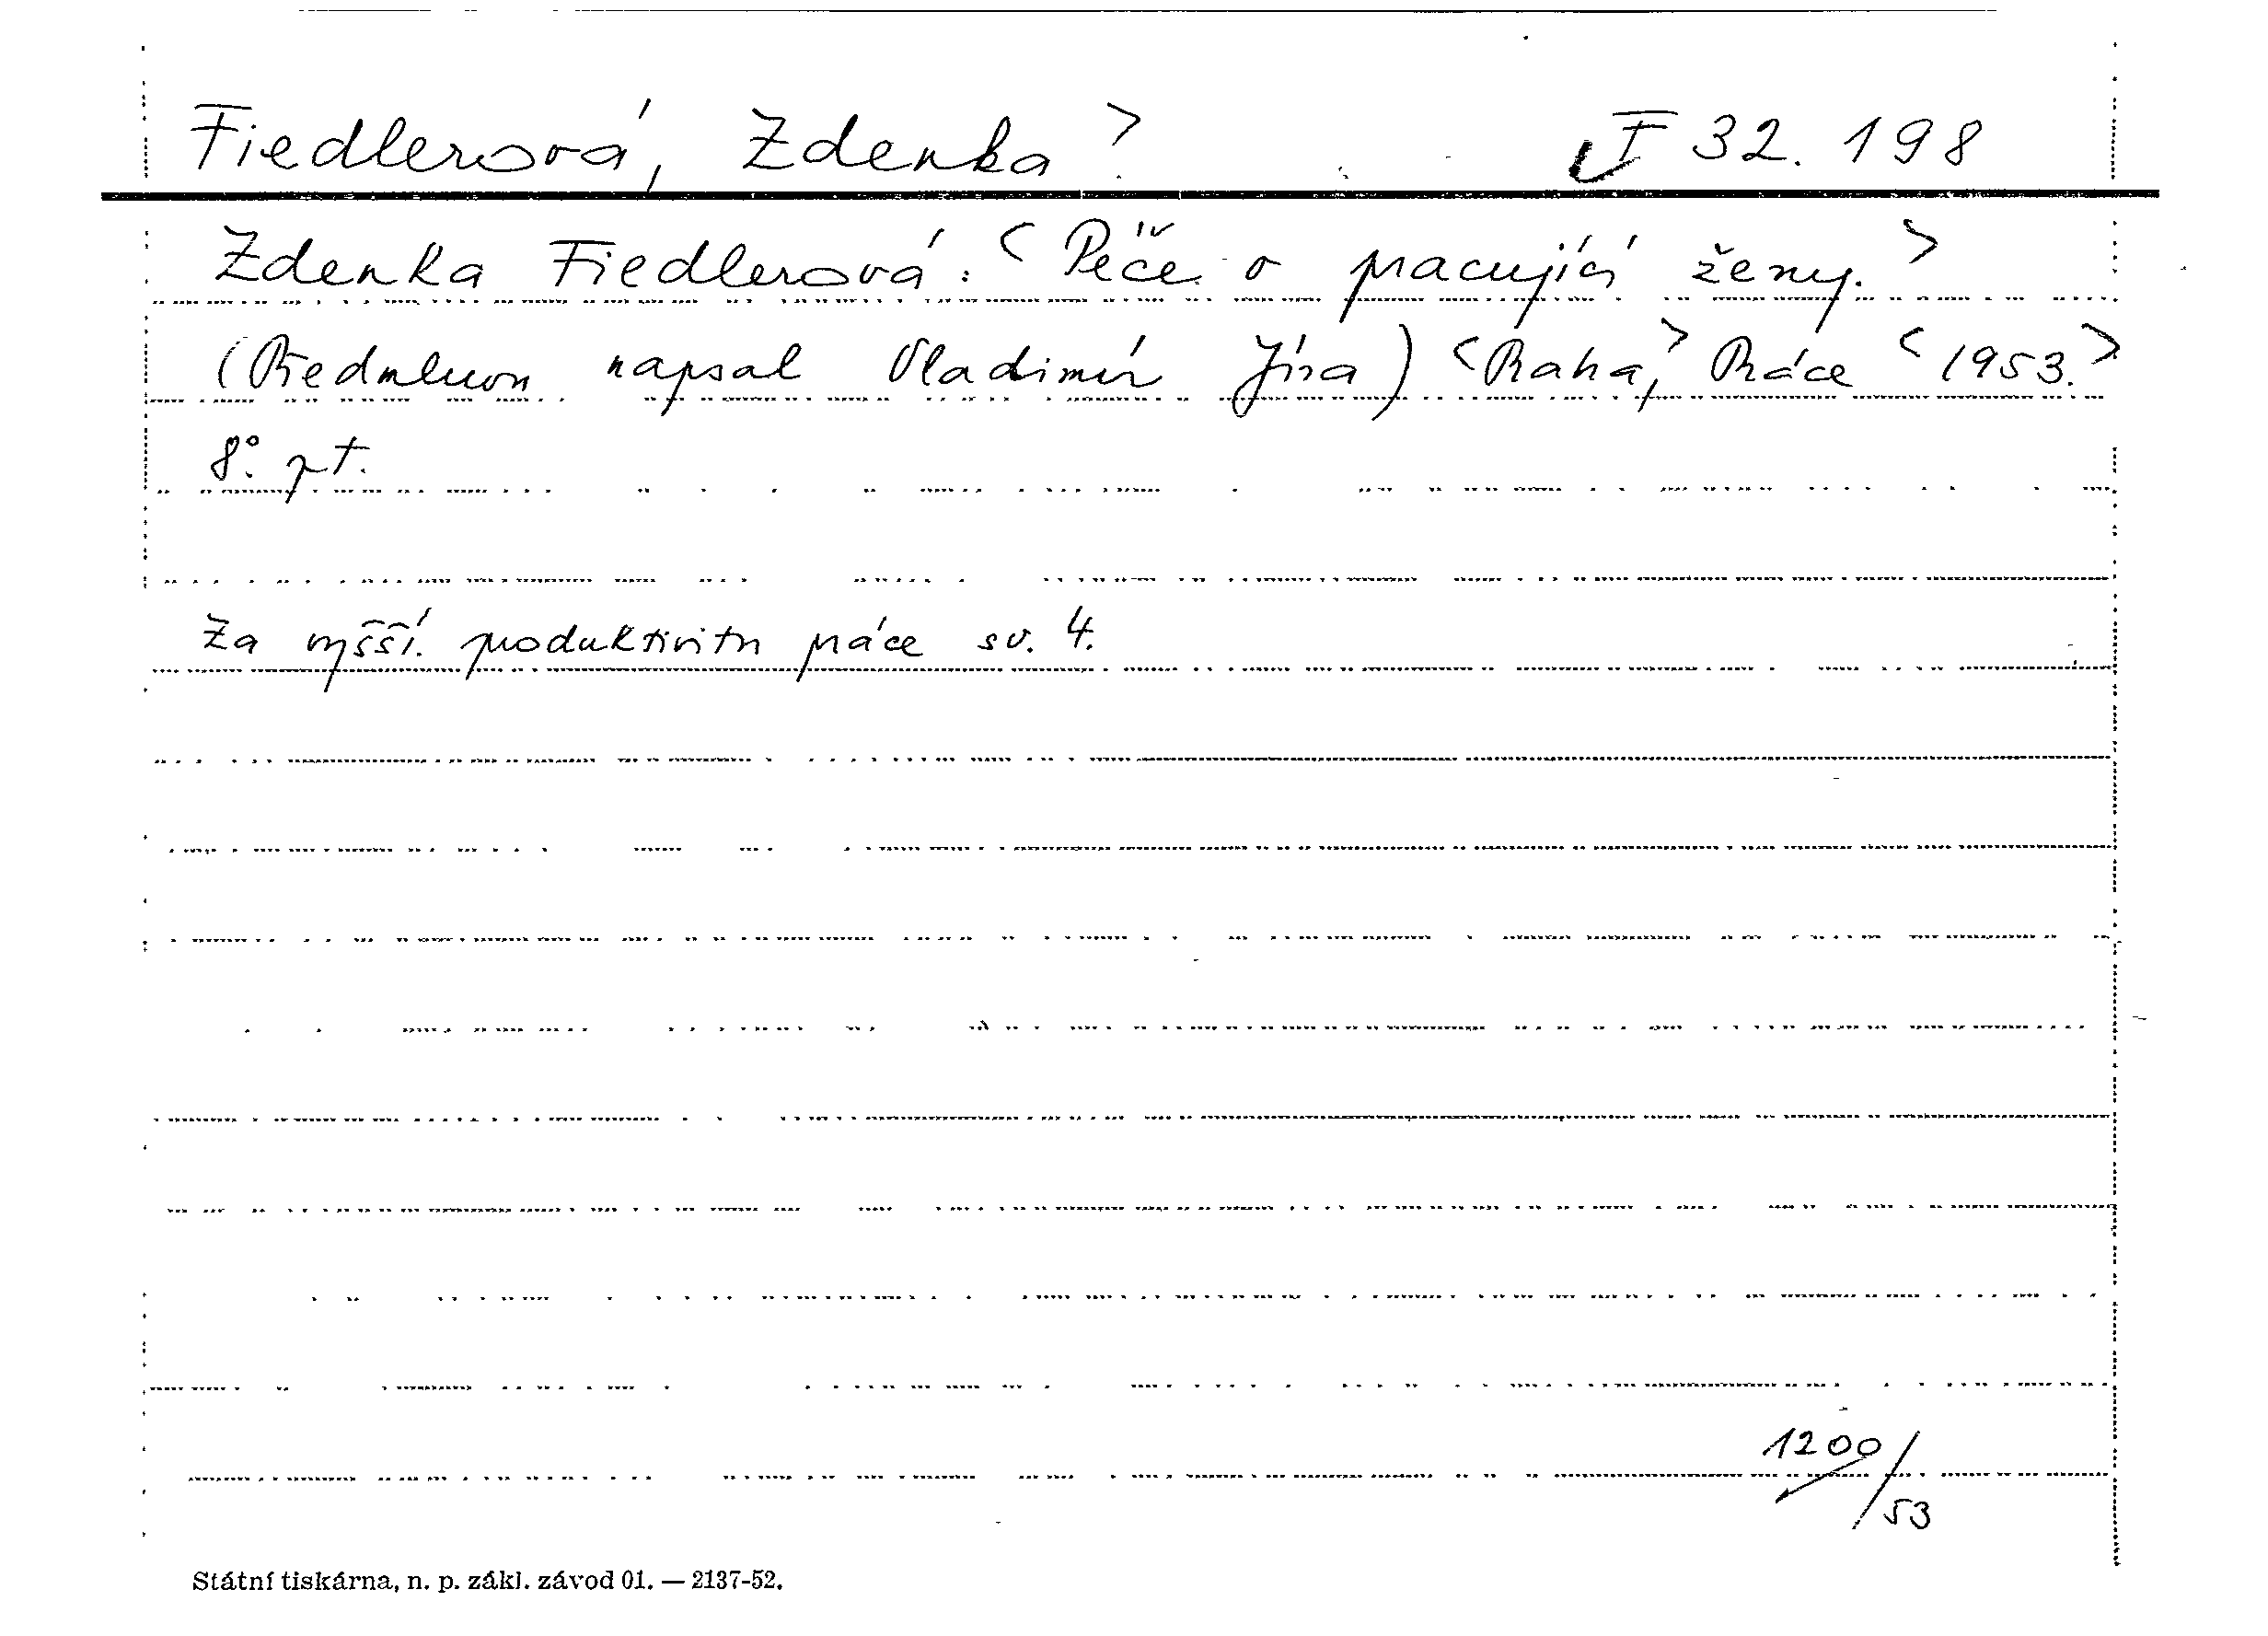 Fiedlerová, Zdenka > I 32.198
Zdenka Fiedlerová: < Péče o pracující ženy. >
(Předmluvu napsal Vladimír Jíra) < Praha, > Práce < 1953. >
8°. pt.
Za vyšší produktivitu práce sv. 4.
1200/53
Státní tiskárna, n. p. zákl. závod 01. — 2137-52.